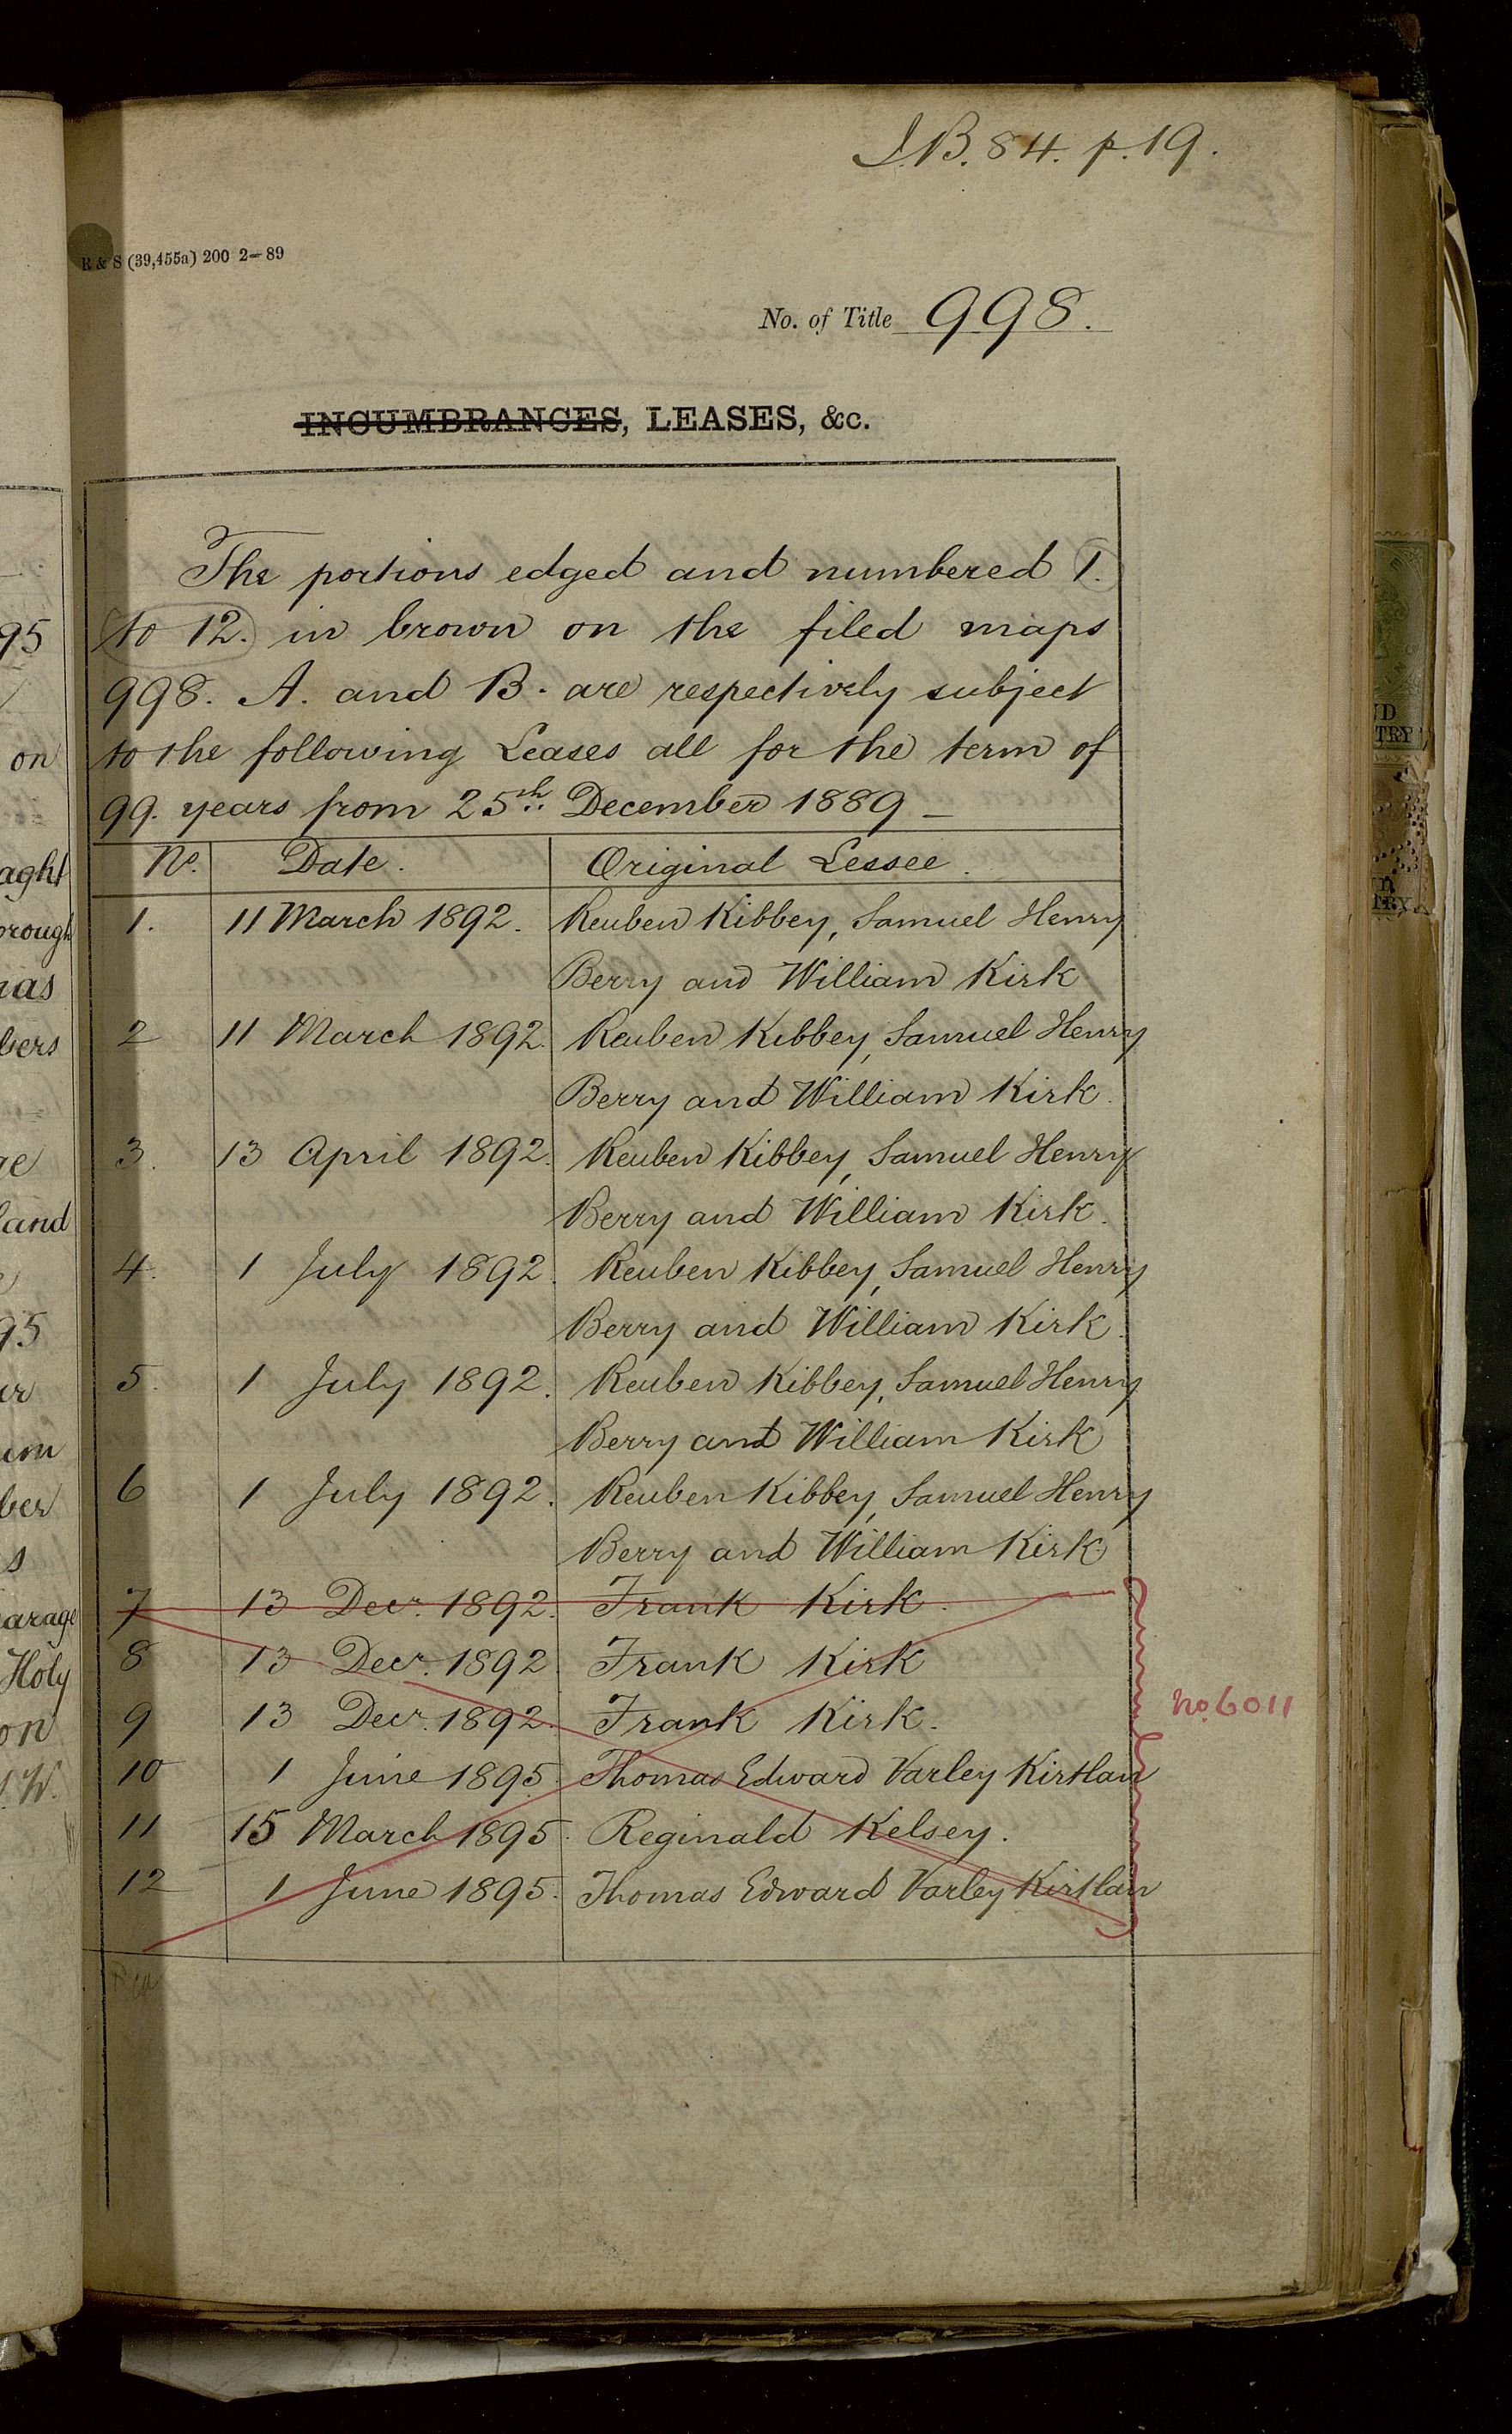 I.B. 84. p. 19.
R & S (39,455a) 200 2—89
No. of Title 998.
INCUMBRANCES, LEASES, &c.
The portions edged and numbered 1.
to 12. in brown on the filed maps
998. A. and B. are respectively subject
to the following Leases all for the term of
99. years from 25th December 1889 —
No. Date. Original Lessee.
1. 11 March 1892. Reuben Kibbey, Samuel Henry
Berry and William Kirk
2 11 March 1892. Reuben Kibbey, Samuel Henry
Berry and William Kirk.
3. 13 April 1892. Reuben Kibbey, Samuel Henry
Berry and William Kirk.
4. 1 July 1892. Reuben Kibbey, Samuel Henry
Berry and William Kirk.
5. 1 July 1892. Reuben Kibbey, Samuel Henry
Berry and William Kirk
6 1 July 1892. Reuben Kibbey, Samuel Henry
Berry and William Kirk
7 13 Decr. 1892. Frank Kirk.
8 13 Decr. 1892 Frank Kirk
9 13 Decr. 1892. Frank Kirk.
No. 6011
10 1 June 1895. Thomas Edward Varley Kirtlan
11 15 March 1895. Reginald Kelsey.
12 1 June 1895. Thomas Edward Varley Kirtlan
95
on
aght
orough
has
bers
land
95
um
ber
s
arage
Holy
on
W.